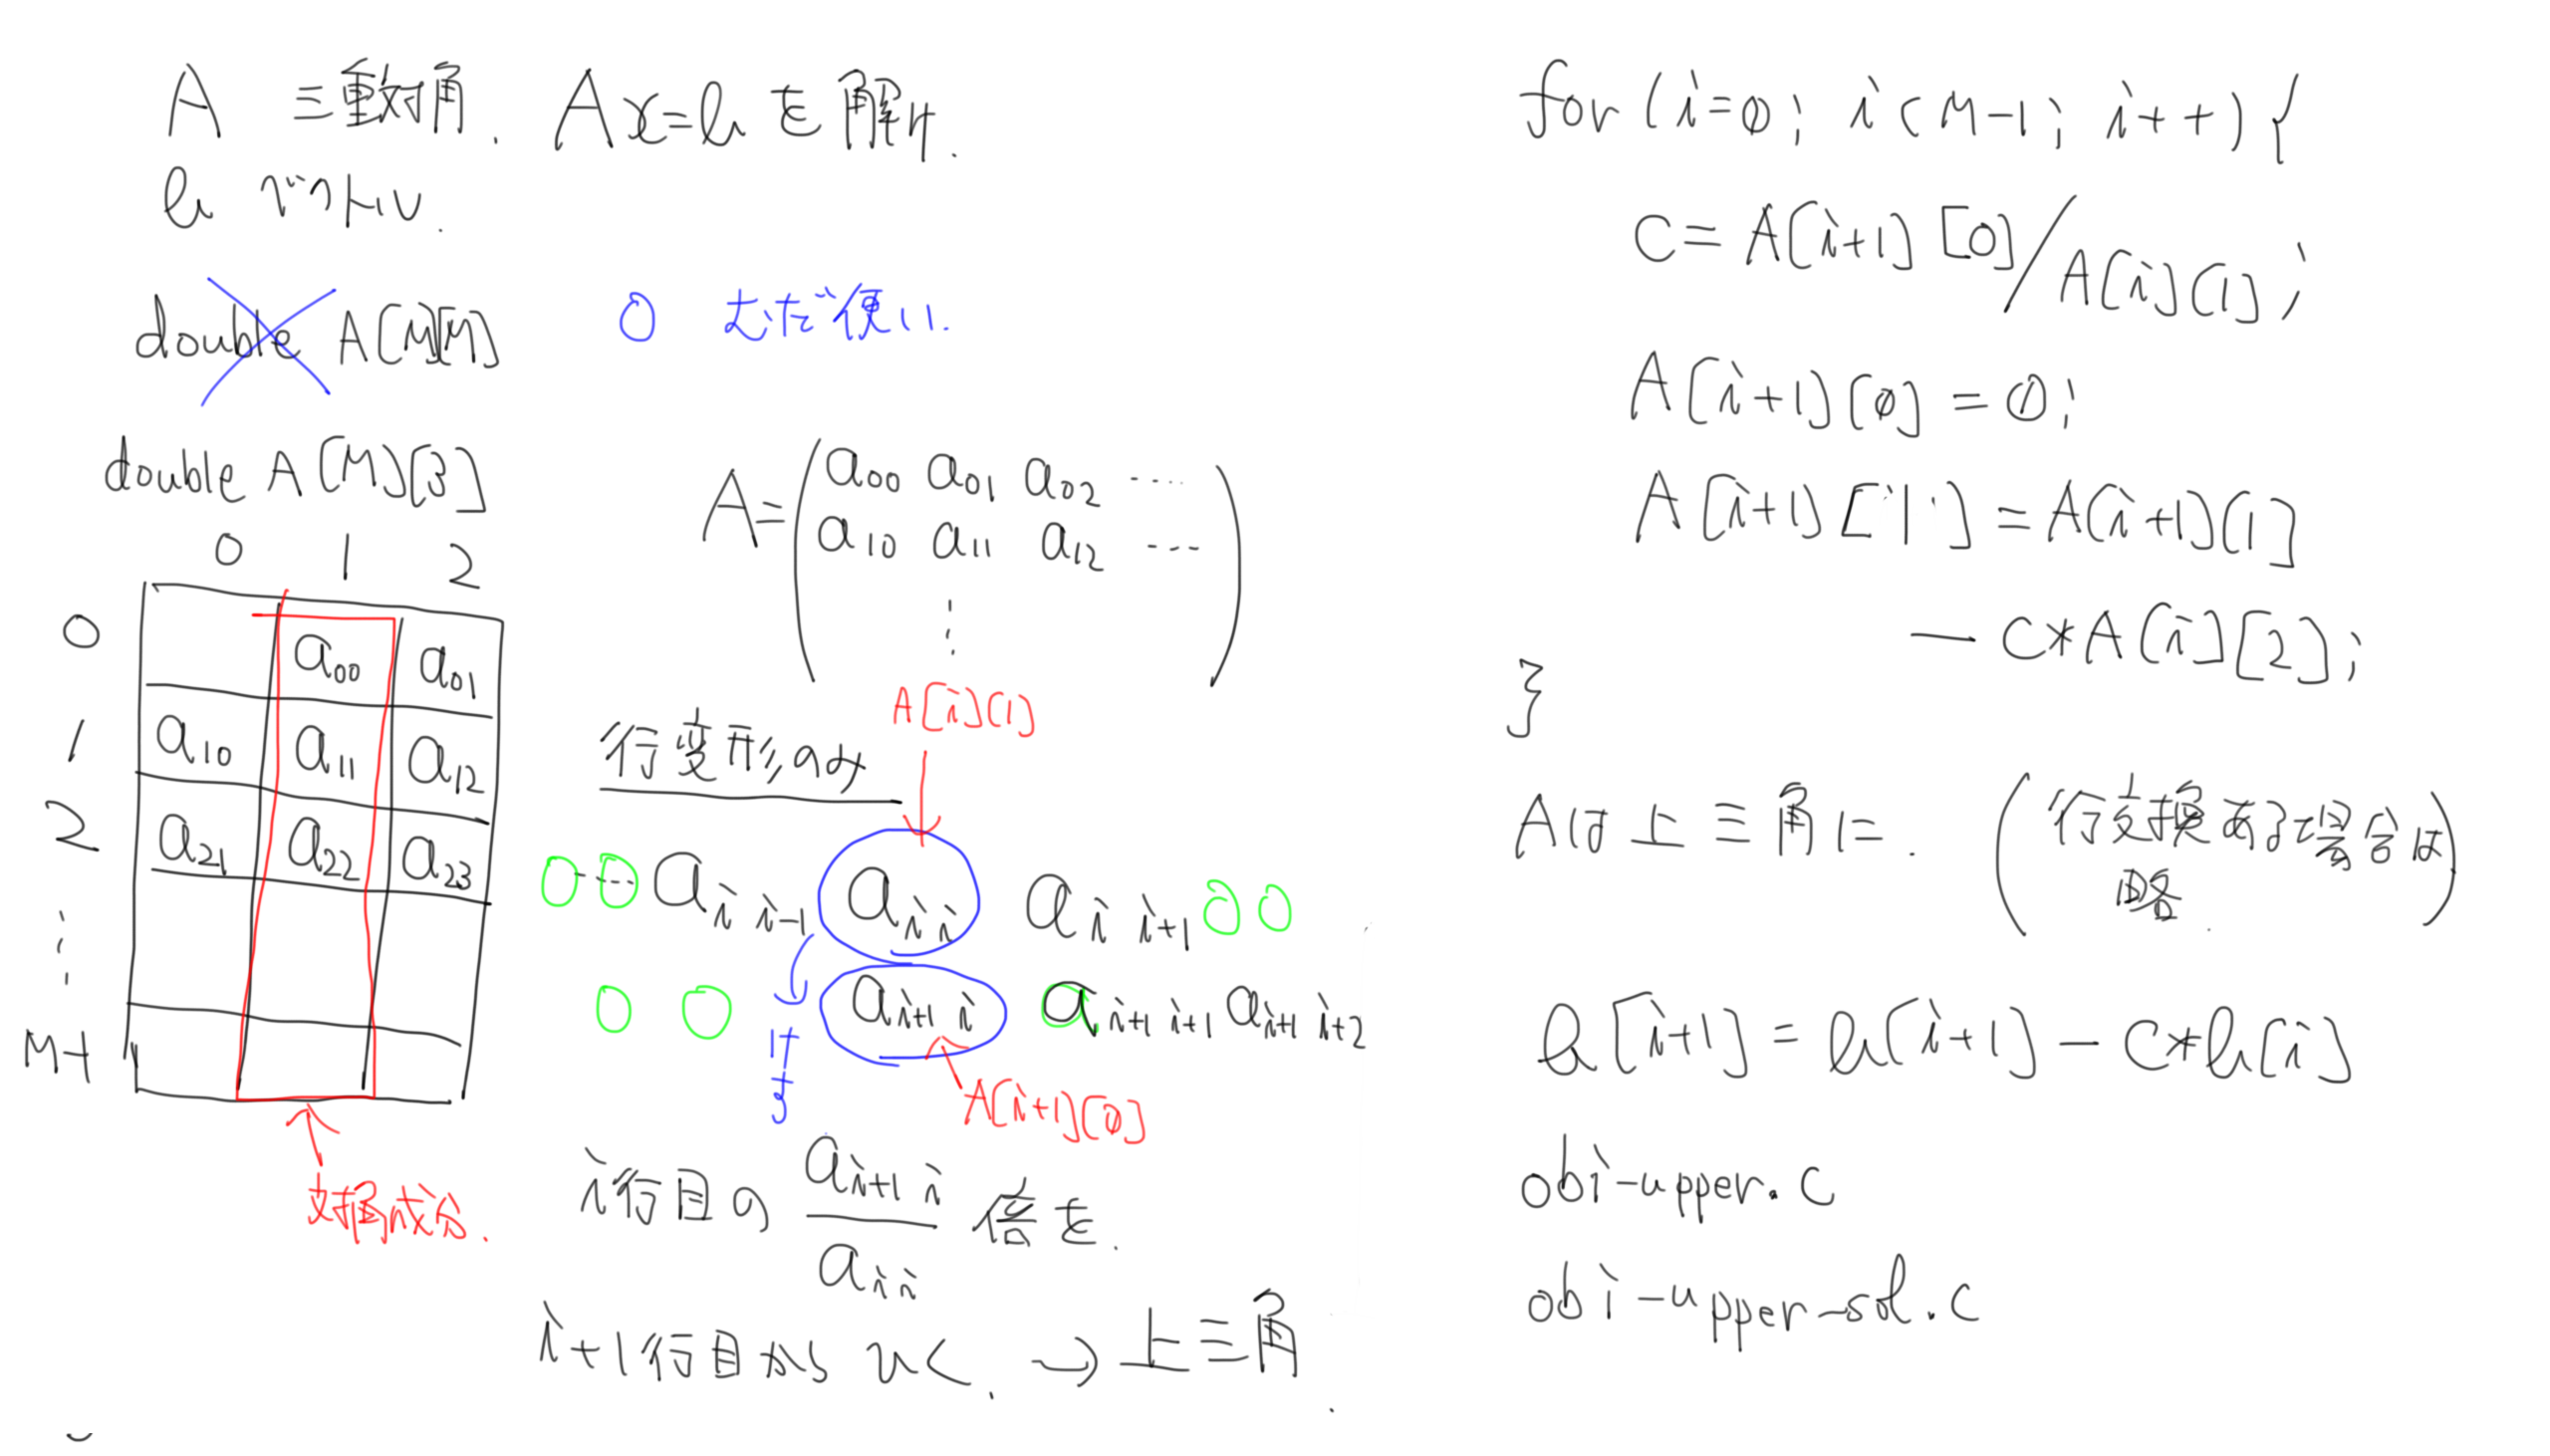 A 三重対角. Ax=b を解け.
b ベクトル.
double A[M][M]
0 むだ使い.
double A[M][3]
0 1 2
0 a00 a01
1 a10 a11 a12
2 a21 a22 a23
⋮
M-1
対角成分.
A=(a00 a01 a02 ·····
a10 a11 a12 ···
⋮)
行変形のみ
A[i][1]
0····0 ai i-1 ai i ai i+1 0 0
0 0 ai+1 i ai+1 i+1 ai+1 i+2
けす
A[i+1][0]
i行目の ai+1 i / ai i 倍を.
i+1行目から ひく. → 上三角.
for (i=0; i<M-1; i++){
c=A[i+1][0]/A[i][1];
A[i+1][0]=0;
A[i+1][1]=A[i+1][1]
-c*A[i][2];
}
Aは上三角に. (行交換ある場合は
略)
b[i+1]=b[i+1]-c*b[i]
obi-upper.c
obi-upper-sol.c